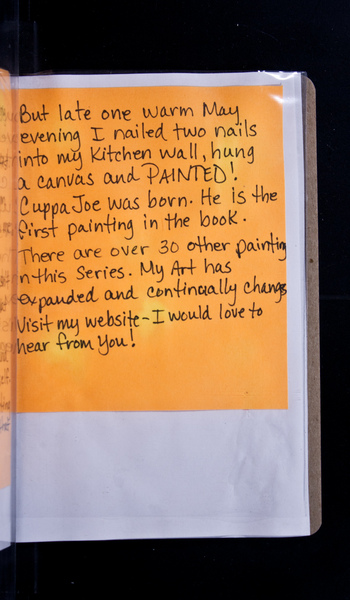 But late one warm May
evening I nailed two nails
into my Kitchen wall, hung
a canvas and PAINTED!
Cuppa Joe was born. He is the
first painting in the book.
There are over 30 other painting
in this Series. My Art has
expanded and continually changes
Visit my website - I would love to
hear from You!